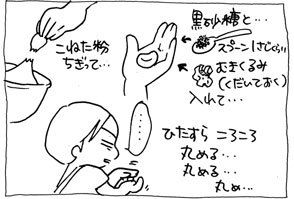 こねた粉
ちぎって…
黒砂糖と…
スプーン1さじくらい
むきくるみ
(くだいておく)
入れて…
……
ひたすら ころころ
丸める…
丸める…
丸め…